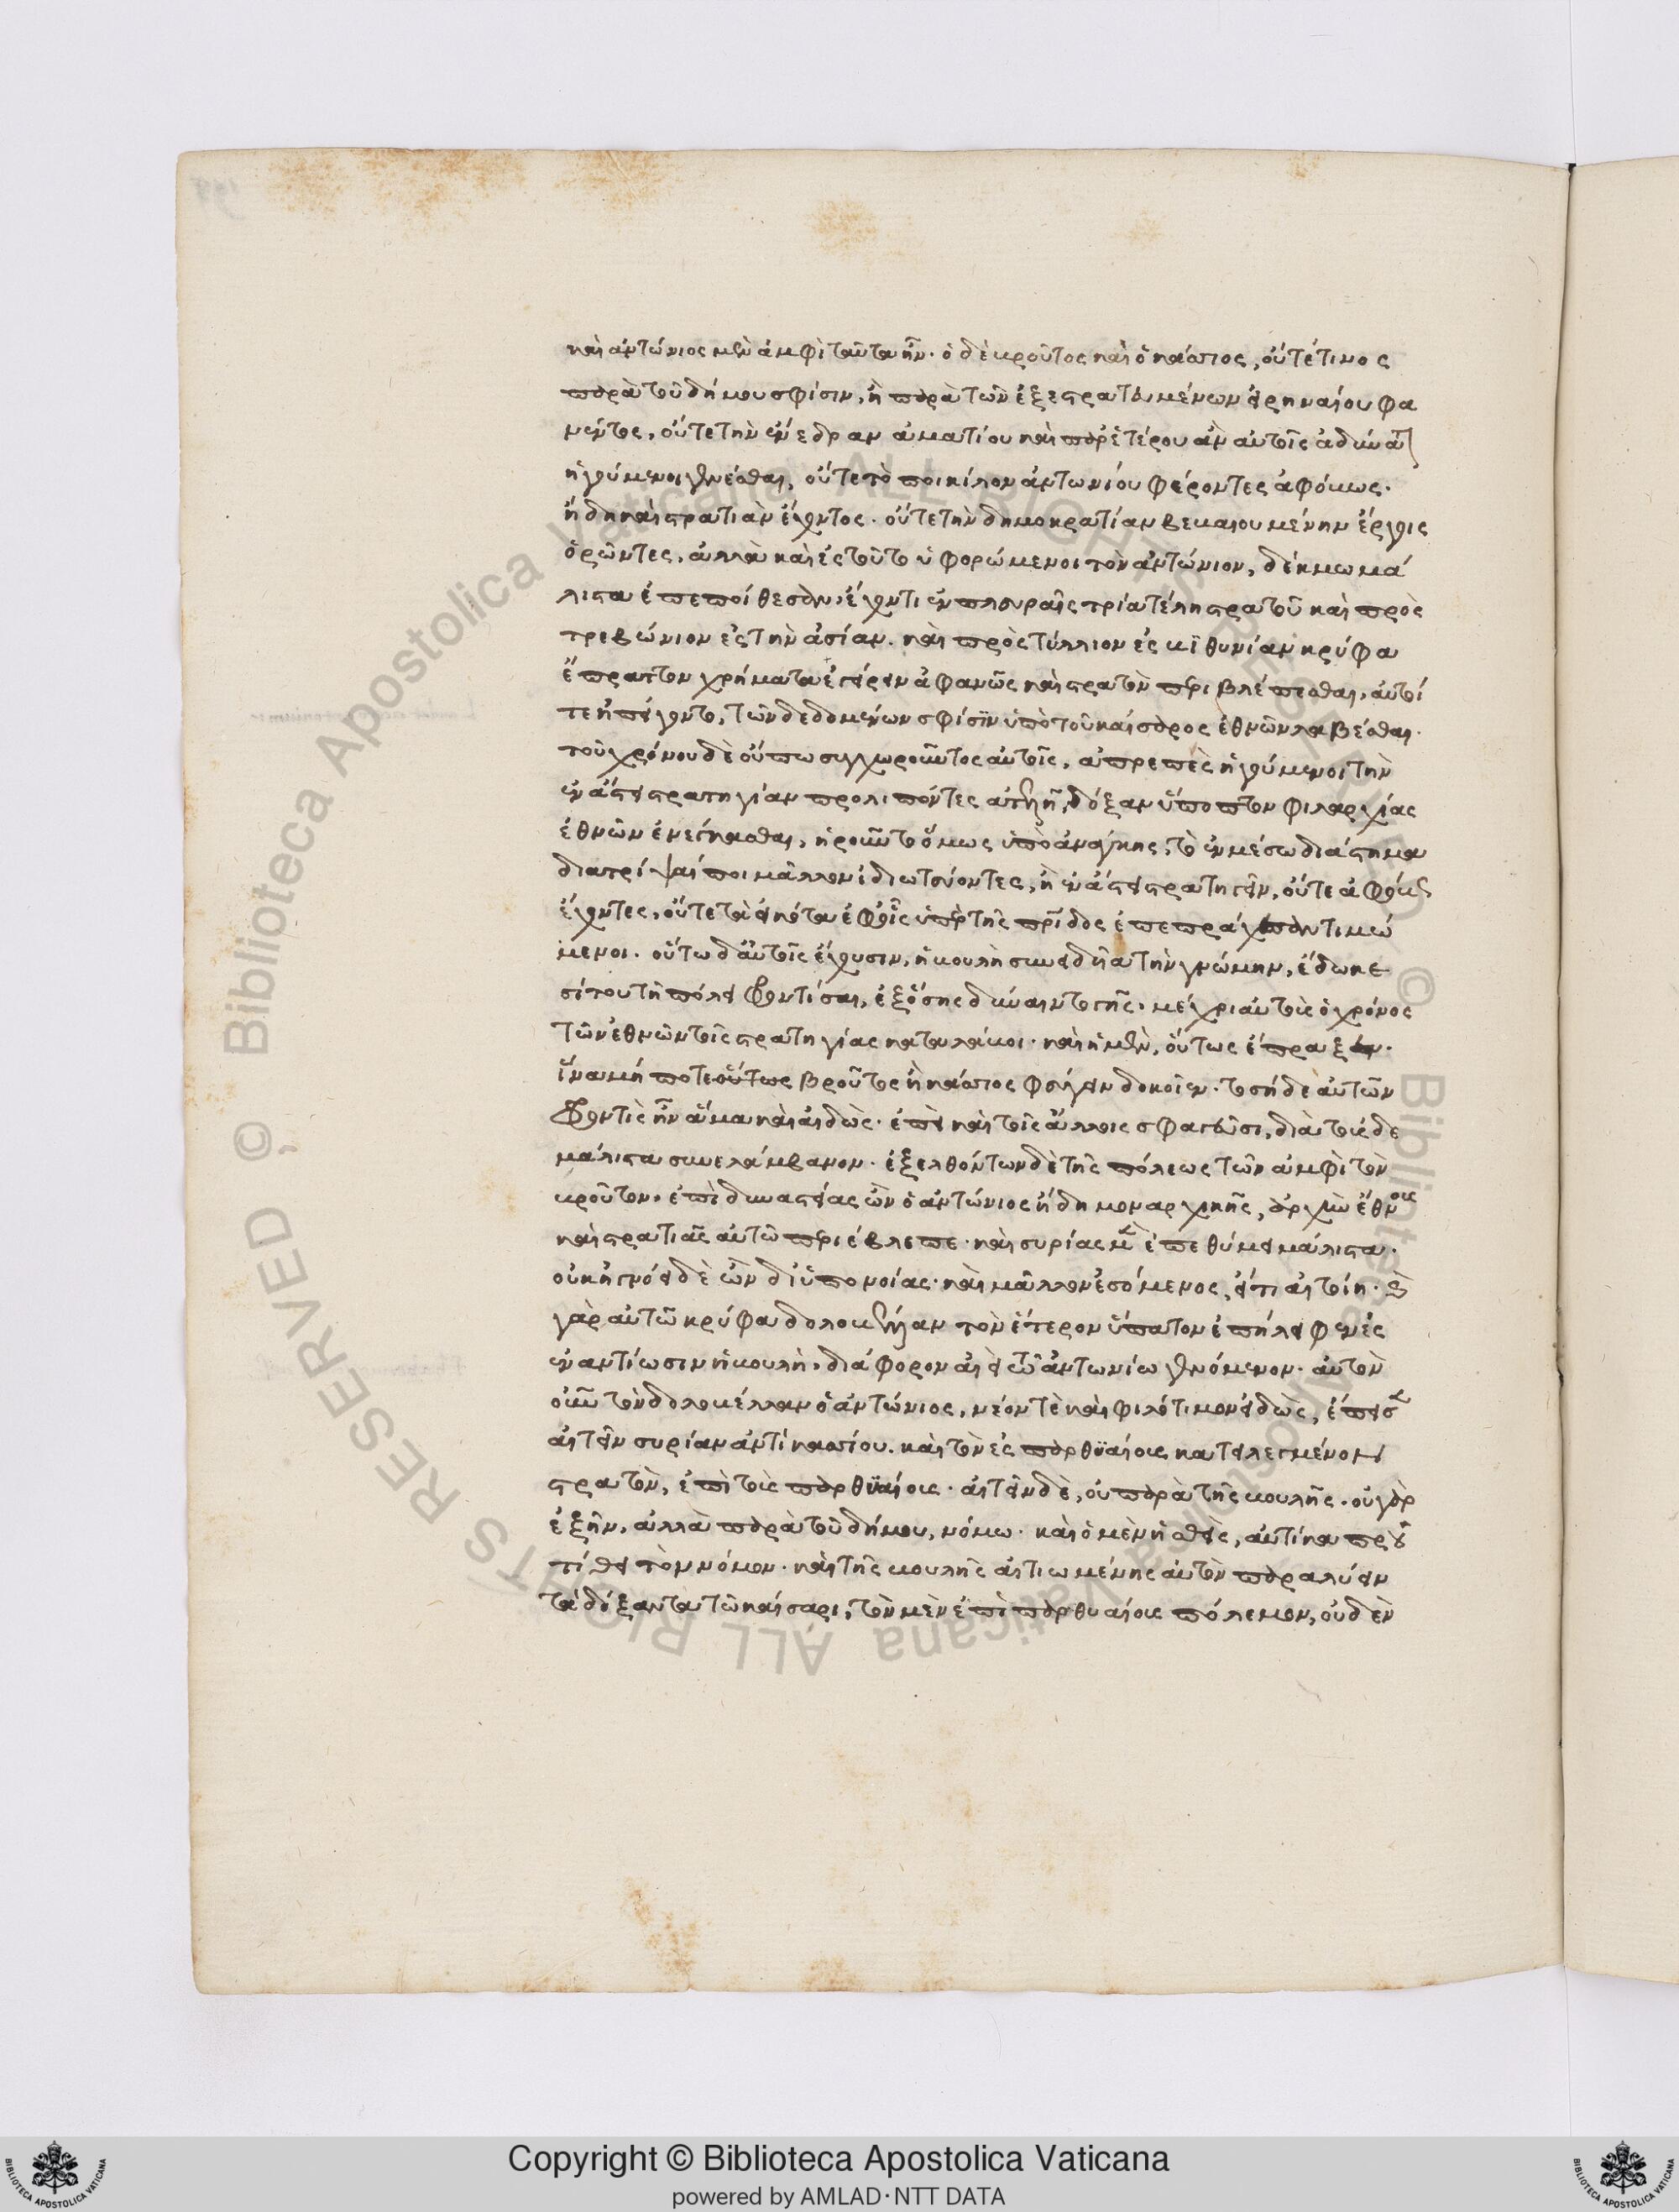 καὶ ἀντώνιος μὲν ἀμφὶ ταῦτα ἦν· ὁ δὲ βροῦτος καὶ ὁ κάσσιος, οὔτέ τινος
παρὰ τοῦ δήμου σφίσιν, ἢ παρὰ τῶν ἐξεστρατευμένων εἰρηναίου φα
νέντος, οὔτε τὴν ἐνέδραν ἀματίου καὶ παρ' ἑτέρου ἂν αὐτοῖς ἀδύνατ
ἡγούμενοι γενέσθαι, οὔτε τὸ ποικίλον ἀντωνίου φέροντες ἀφόβως·
ἤδη καὶ στρατιὰν ἔχοντος· οὔτε τὴν δημοκρατίαν βεβαιουμένην ἔργοις
ὁρῶντες, ἀλλὰ καὶ ἐς τοῦτο ὑφορώμενοι τὸν ἀντώνιον, δέκμω μά
λιστα ἐπεποίθεσαν, ἔχοντι ἐν πλευραῖς τρία τέλη στρατοῦ καὶ πρὸς
τρεβώνιον ἐς τὴν ἀσίαν. καὶ πρὸς τύλλιον ἐς βϊθυνίαν κρύφα
ἔπραττον χρήματα ἐγείρειν ἀφανῶς καὶ στρατὸν περιβλέπεσθαι, αὐτοί
τε ἠπείγοντο, τῶν δεδομένων σφίσϊν ὑπὸ τοῦ καίσαρος ἐθνῶν λαβέσθαι·
τοῦ χρόνου δὲ οὔπω συγχωροῦντος αὐτοῖς, ἀπρεπὲς ἡγούμενοι τὴν
ἐν ἄστει στρατηγίαν προλιπόντες ἀτελῆ, δόξαν ὕποπτον φιλαρχίας
ἐθνῶν ἐνέγκασθαι, ἡροῦντο ὅμως ὑπὸ ἀνάγκης, τὸ ἐν μέσω διάστημα
διατρίψαί ποι μᾶλλον ἰδιωτεύοντες, ἢ ἐν ἄστει στρατηγεῖν, οὔτε ἀφόβως
ἔχοντες, οὔτε τὰ εἰκότα ἐφ' οἷς ὑπὲρ τῆς πατρίδος ἐπεπράχεσαν τιμώ
μενοι. οὕτω δ' αὐτοῖς ἔχουσιν, ἡ βουλὴ συνειδυῖα τὴν γνώμην, ἔδωκε
σίτου τῆ πόλει φροντίσαι, ἐξ ὅσης δύναιντο γῆς· μέχρι αὐτοὺς ὁ χρόνος
τῶν ἐθνῶν τοῖς στρατηγίας καταλάβοι· καὶ ἡ μὲν, οὕτως ἔπραξεν·
ἵνα μή ποτε οὕτως βροῦτος ἢ κάσσιος φεύγειν δοκοῖεν· τοσήδε αὐτῶν
φροντὶς ἦν ἅμα καὶ αἰδὼς· ἐπεὶ καὶ τοῖς ἄλλοις σφαγεῦσι, διὰ τούσδε
μάλιστα συνελάμβανον· ἐξελθόντων δὲ τῆς πόλεως τῶν ἀμφὶ τὸν
βροῦτον· ἐπὶ δυναστείας ὢν ὁ ἀντώνιος ἤδη μοναρχικῆς, ἀρχὴν ἔθνους
καὶ στρατιᾶς αὐτῶ περιέβλεπε· καὶ συρίας μὲν ἐπεθύμει μάλιστα·
οὐκ ἠγνόει δὲ ὢν δι' ὑπονοίας· καὶ μᾶλλον ἐσόμενος, εἴ τι αἰτοίη· καὶ
γὰρ αὐτῶ κρύφα δολοβέλλαν τὸν ἕτερον ὕπατον ἐπήλειφεν ἐς
ἐναντίωσιν ἡ βουλὴ, διάφορον ἀεὶ τῶ ἀντωνίω γενόμενον· αὐτὸν
οὖν τὸν δολοβέλλαν ὁ ἀντώνιος, νέον τὲ καὶ φιλότιμον εἰδὼς, ἔπεισεν
αἰτεῖν συρίαν ἀντὶ κασσίου. καὶ τὸν ἐς παρθϋαίους κατειλεγμένον
στρατὸν, ἐπὶ τοὺς παρθϋαίους· αἰτεῖν δὲ, οὐ παρὰ τῆς βουλῆς· οὐ γὰρ
ἐξῆν, ἀλλὰ παρὰ τοῦ δήμου, νόμω· καὶ ὁ μὲν ἡσθεὶς, αὐτίκα προὐ
τίθει τὸν νόμον· καὶ τῆς βουλῆς αἰτιωμένης αὐτὸν παραλύειν
τὰ δόξαντα τῶ καίσαρι, τὸν μὲν ἐπὶ παρθυαίους πόλεμον, οὐδενὶ
Copyright © Biblioteca Apostolica Vaticana
powered by AMLAD·NTT DATA